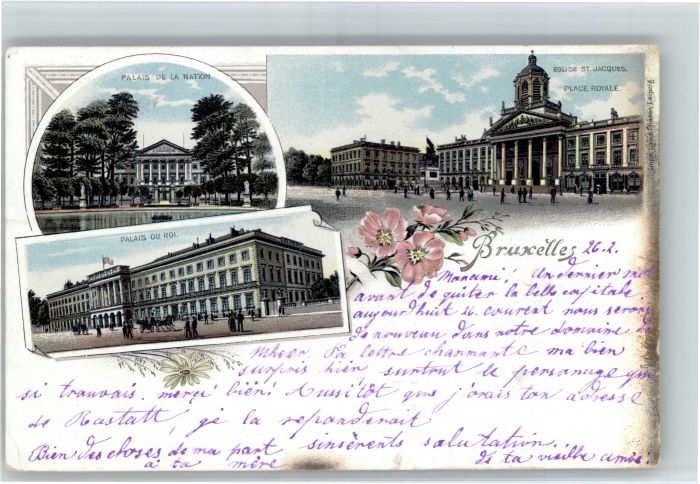 PALAIS DE LA NATION.
EGLISE ST. JACQUES.
PLACE ROYALE.
PALAIS DU ROI.
Bruxelles 26.2.
Un dernier mot
avant de quiter la belle capitale.
aujourd'huit 26. courent nous serons
de nouveau dans notre domaine de
Mheer. Ta lettre charmante ma bien
surpris hièr surtout le personage qui
si trauvais. merçi bièn! Aussitôt que j'orais ton adresse
de Rastatt, je la reponderait
Bien des choses de ma part sinsèrents salutation..
à ta mère de ta vieille amie!